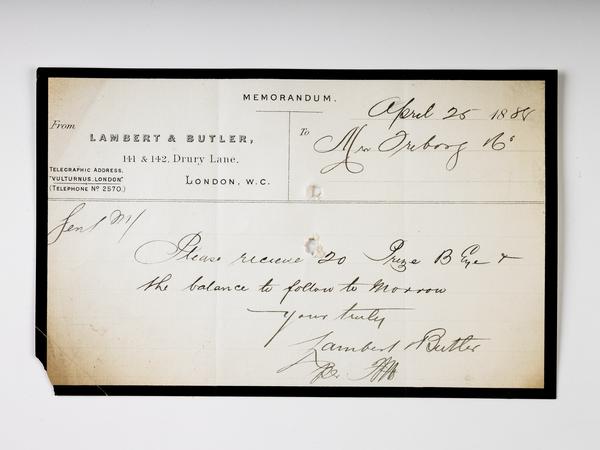 MEMORANDUM.
April 25 1888
From
To
LAMBERT & BUTLER,
141 & 142, Drury Lane.
TELEGRAPHIC ADDRESS,
"VULTURNUS, LONDON"
(TELEPHONE Nº 2570.)
LONDON, W.C.
Please recieve 20 Prize B Eye &
the balance to follow to Morrow
Yours truly
Lambert & Butler
Per